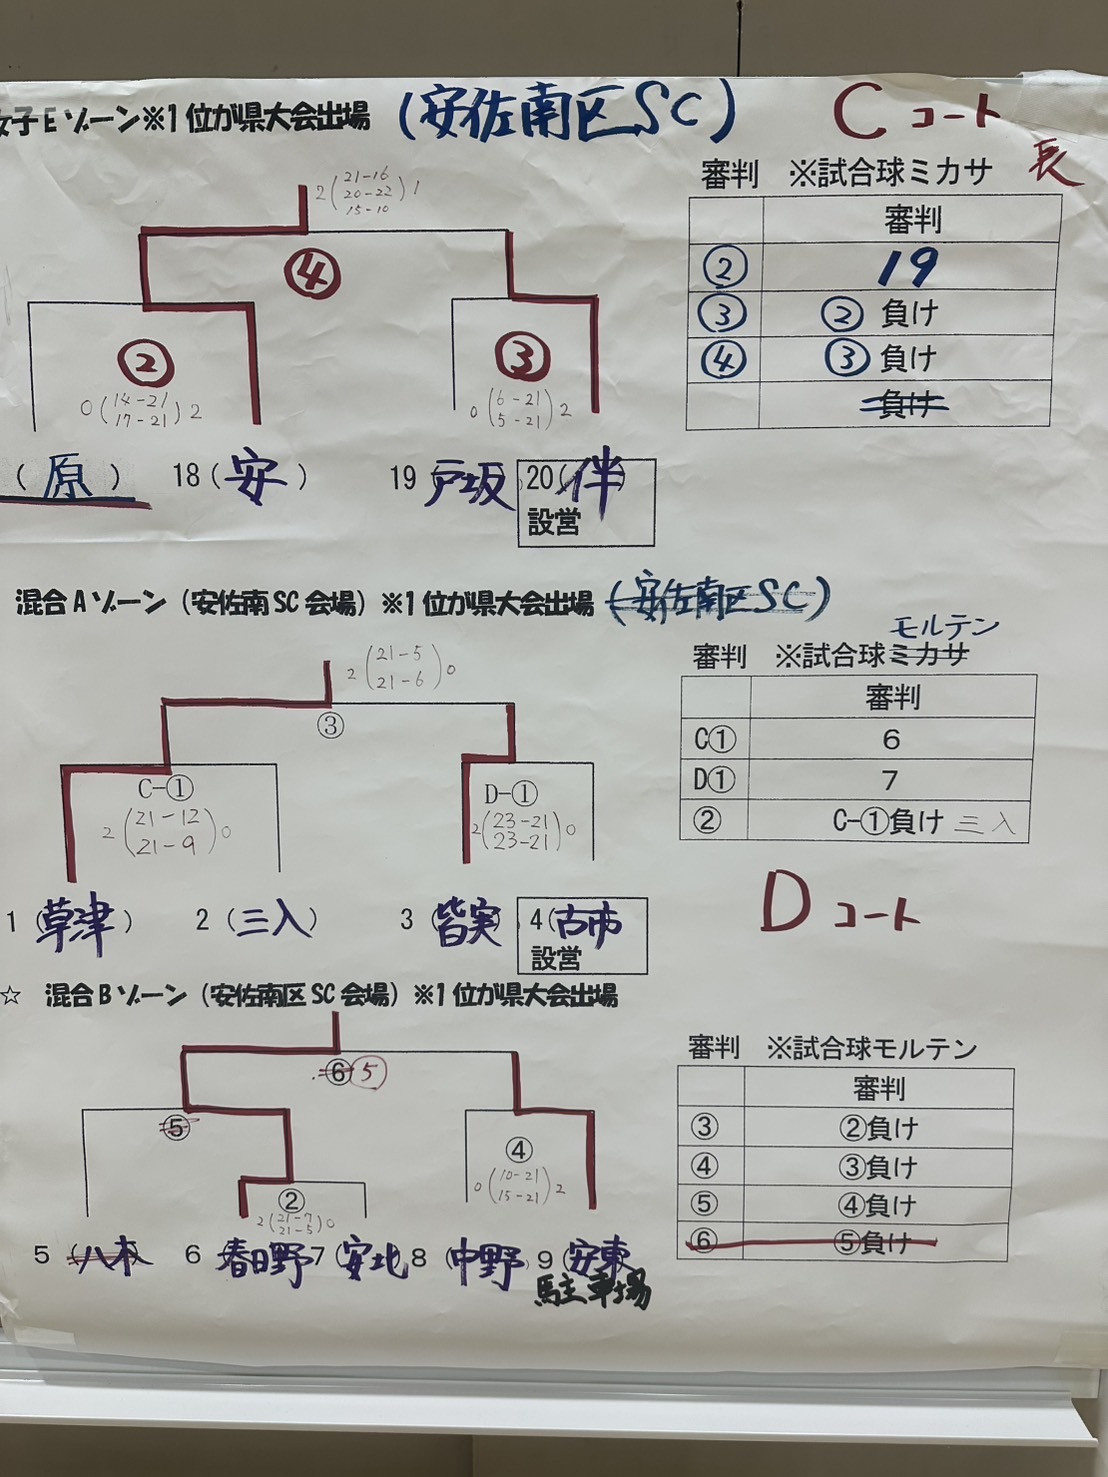 女子Eゾーン※1位が県大会出場 (安佐南区SC) Cコート
審判 ※試合球ミカサ
2(21-16 20-22 15-10)1
審判
② 19
③ ②負け
④ ③負け
負け
④
② ③
0(14-21 17-21)2 0(6-21 5-21)2
(原) 18(安) 19 戸坂 20(伴)
設営
混合Aゾーン(安佐南SC会場)※1位が県大会出場 (安佐南区SC)
モルテン
審判 ※試合球ミカサ
2(21-5 21-6)0
審判
C① 6
D① 7
② C-①負け 三入
③
C-① D-①
2(21-12 21-9)0 2(23-21 23-21)0
Dコート
1(草津) 2(三入) 3(皆実) 4(古市)
設営
☆ 混合Bゾーン(安佐南区SC会場)※1位が県大会出場
審判 ※試合球モルテン
審判
③ ②負け
④ ③負け
⑤ ④負け
⑥ ⑤負け
⑥ 5
⑤ ④
0(10-21 15-21)2
②
2(21-7 21-5)0
5(八木) 6(春日野) 7(安北) 8(中野) 9(安東)
駐車場